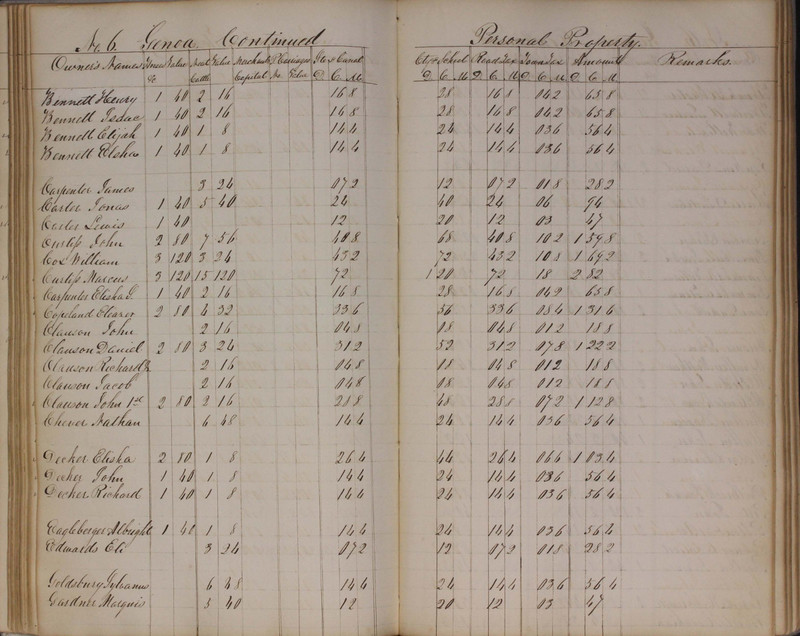 No. 6. Genoa Continued Personal Property.
Owners Names Horses Value Neat Cattle Value Merchants Capital Carriages No. Value St & Canal D C M Cty & School D C M Road Tax D C M Town Tax D C M Amount D C M Remarks.
Bennett Henry 1 40 2 16 16 8 28 16 8 04 2 65 8
Bennett Isaac 1 40 2 16 16 8 28 16 8 04 2 65 8
Bennett Elijah 1 40 1 8 14 4 24 14 4 03 6 56 4
Bennett Elisha 1 40 1 8 14 4 24 14 4 03 6 56 4
Carpenter James 3 24 07 2 12 07 2 01 8 28 2
Carter Jonas 1 40 5 40 24 40 24 06 94
Carter Lewis 1 40 12 20 12 03 47
Curtis John 2 80 7 56 40 8 68 40 8 10 2 1 59 8
Cox William 3 120 3 24 43 2 72 43 2 10 8 1 69 2
Curtis Marcus 3 120 15 120 72 1 20 72 18 2 82
Carpenter Elisha 1 40 2 16 16 8 28 16 8 04 2 65 8
Copeland Eleazer 2 80 4 32 33 6 56 33 6 08 4 1 31 6
Clawson John 2 16 04 8 08 04 8 01 2 18 8
Clawson Daniel 2 80 3 24 31 2 52 31 2 07 8 1 22 2
Clawson Richard 2 16 04 8 08 04 8 01 2 18 8
Clawson Jacob 2 16 04 8 08 04 8 01 2 18 8
Clawson John 1st 2 80 2 16 28 8 48 28 8 07 2 1 12 8
Chever Nathan 6 48 14 4 24 14 4 03 6 56 4
Decker Elisha 2 80 1 8 26 4 44 26 4 06 6 1 03 4
Decker John 1 40 1 8 14 4 24 14 4 03 6 56 4
Decker Richard 1 40 1 8 14 4 24 14 4 03 6 56 4
Eagleberger Albright 1 40 1 8 14 4 24 14 4 03 6 56 4
Edwards Eli 3 24 07 2 12 07 2 01 8 28 2
Goldsbury Sylvanus 6 48 14 4 24 14 4 03 6 56 4
Gardner Marquis 5 40 12 20 12 03 47